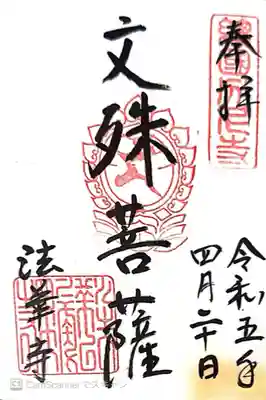 奉拝
令和五年
四月二十日
文殊菩薩
法華寺
CamScanner でスキャン